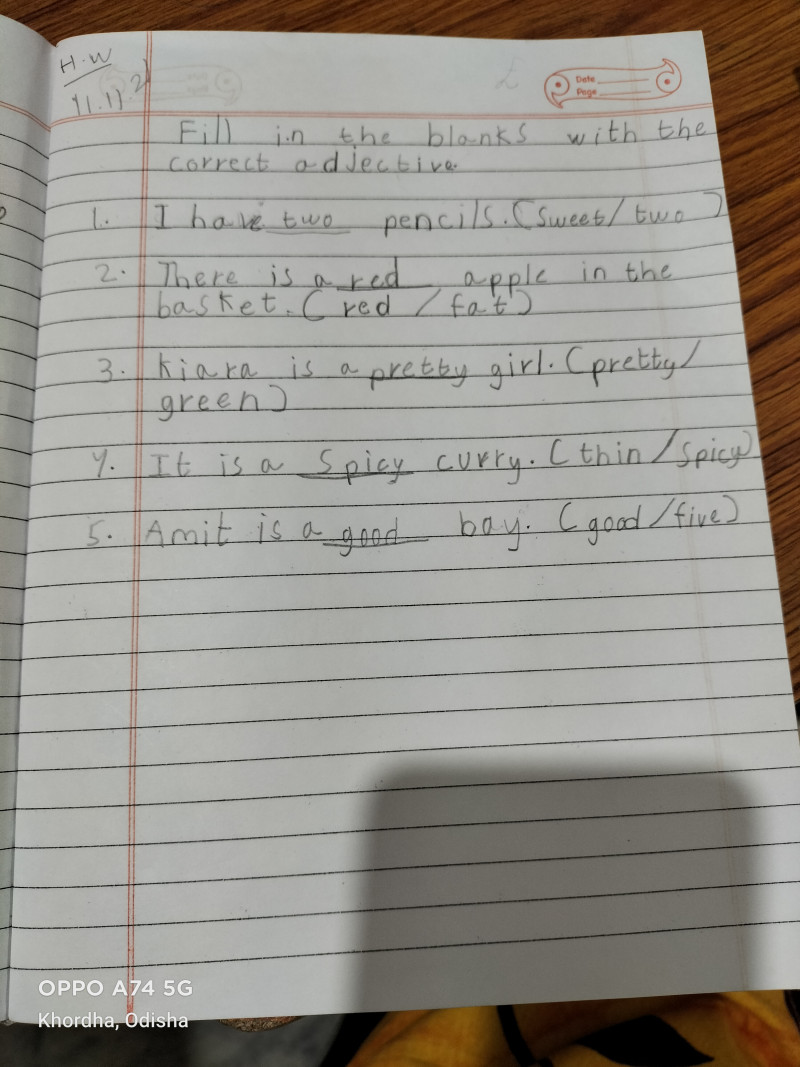 H.W
11.11.21
Date
Page
Fill in the blanks with the
correct adjective
1. I have two pencils. (sweet/two)
2. There is a red apple in the
basket. (red / fat)
3. Kiara is a pretty girl. (pretty/
green)
4. It is a Spicy curry. (thin/Spicy)
5. Amit is a good boy. (good/five)
OPPO A74 5G
Khordha, Odisha